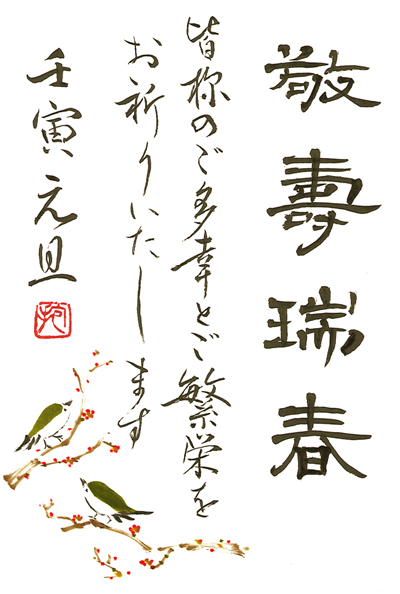 敬壽瑞春
皆様のご多幸とご繁栄を
お祈りいたします
壬寅元旦